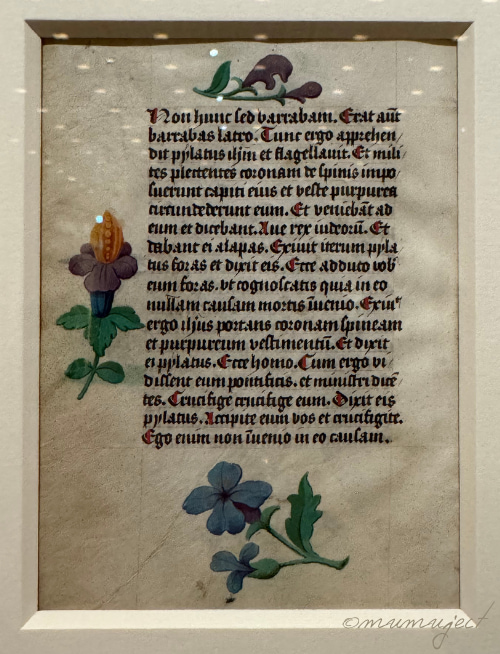 Non hunc sed barrabam. Erat aūt
barrabas latro. Tunc ergo apprehen
dit pylatus ihm et flagellauit. Et mili
tes plectentes coronam de spinis impo
suerunt capiti eius et veste purpurea
circundederunt eum. Et veniebāt ad
eum et dicebant. Aue rex iudeorū. Et
dabant ei alapas. Exiuit iterum pyla
tus foras et dixit eis. Ecce adduco vob
eum foras. vt cognoscatis quia in eo
nullam causam mortis īuenio. Exiuᵗ
ergo ihus portans coronam spineam
et purpureum vestimentū. Et dixit
ei pylatus. Ecce homo. Cum ergo vi
dissent eum pontifices. et ministri dicē
tes. Crucifige crucifige eum. Dixit eis
pylatus. Accipite eum vos et crucifigite.
Ego enim non īuenio in eo causam.
©mumuject